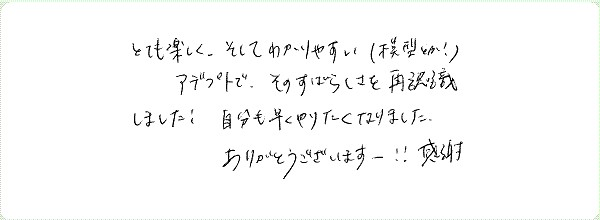 とても楽しく、そしてわかりやすい(模型とか!)
アデプトで、そのすばらしさを再認識
しました! 自分も早くやりたくなりました。
ありがとうございますー!! 感謝